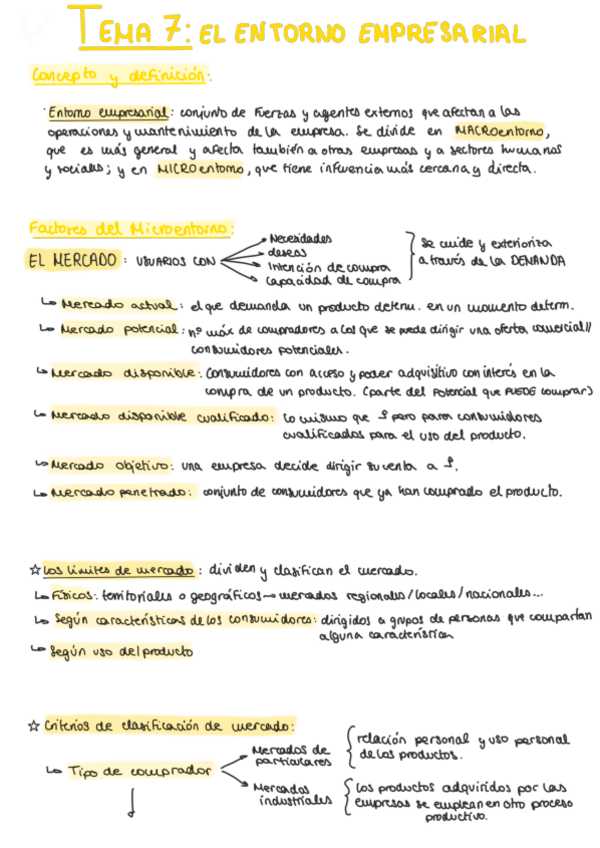 TEMA 7: EL ENTORNO EMPRESARIAL
Concepto y definición:
· Entorno empresarial: conjunto de fuerzas y agentes externos que afectan a las
operaciones y mantenimiento de la empresa. Se divide en MACROentorno,
que es más general y afecta también a otras empresas y a sectores humanos
y sociales; y en MICROentorno, que tiene influencia más cercana y directa.
Factores del Microentorno:
EL MERCADO: USUARIOS CON
Necesidades
deseos
Intención de compra
capacidad de compra
Se mide y exterioriza
a través de la DEMANDA
↳ Mercado actual: el que demanda un producto determ. en un momento determ.
↳ Mercado potencial: nº máx de compradores a los que se puede dirigir una oferta comercial //
consumidores potenciales.
↳ Mercado disponible: Consumidores con acceso y poder adquisitivo con interés en la
compra de un producto. (parte del Potencial que PUEDE comprar)
↳ Mercado disponible cualificado: Lo mismo que ↑ pero para consumidores
cualificados para el uso del producto.
↳ Mercado objetivo: una empresa decide dirigir su venta a ↑.
↳ Mercado penetrado: conjunto de consumidores que ya han comprado el producto.
☆ Los límites de mercado: dividen y clasifican el mercado.
↳ Físicos: territoriales o geográficos → mercados regionales/locales/nacionales...
↳ Según características de los consumidores: dirigidos a grupos de personas que compartan
alguna característica
↳ Según uso del producto
☆ Criterios de clasificación de mercado:
↳ Tipo de comprador
Mercados de
particulares
relación personal y uso personal
de los productos.
Mercados
industriales
Los productos adquiridos por las
empresas se emplean en otro proceso
productivo.